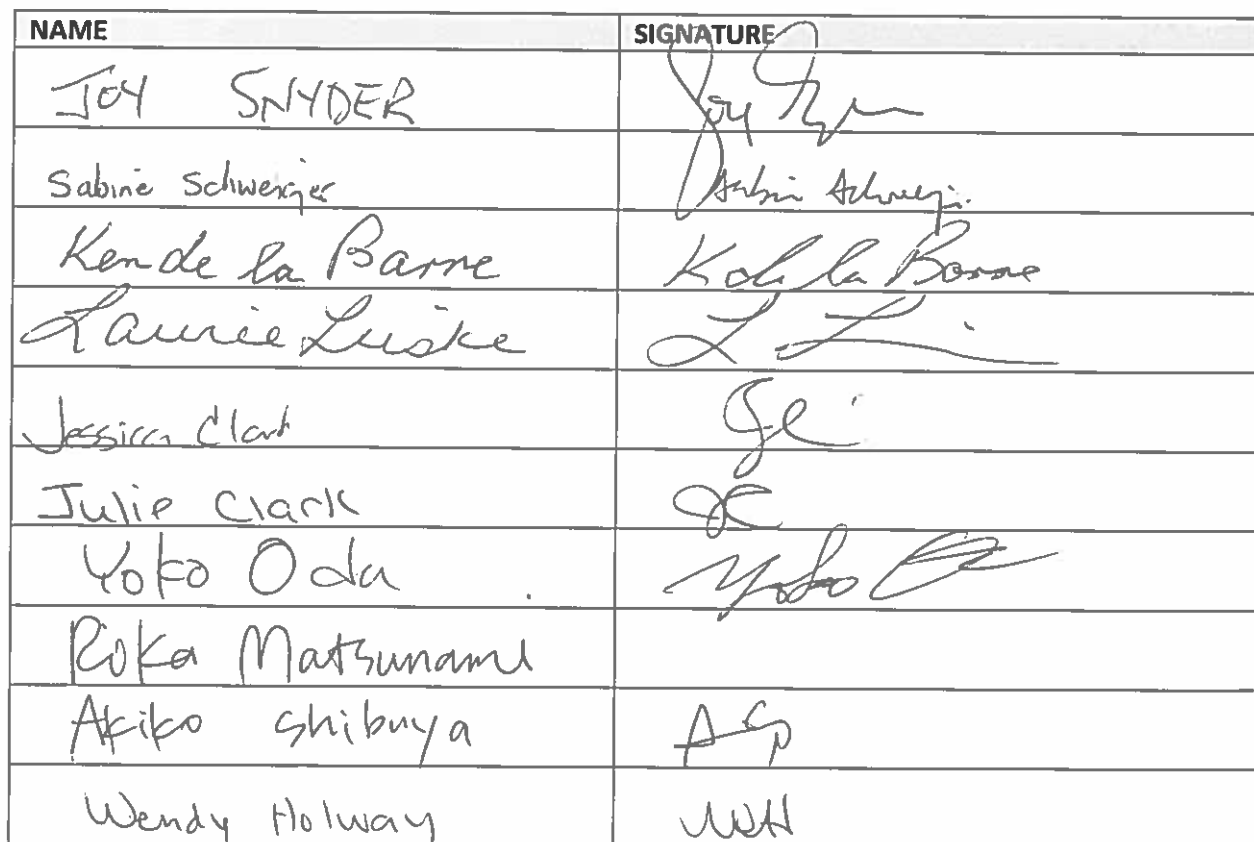 NAME SIGNATURE
JOY SNYDER Joy
Sabine Schweiger
Ken de la Barre K de la Barre
Laurie Luske L L
Jessica Clark JC
Julie Clark JC
Yoko Oda Yoko
Roka Matsunami
Akiko Shibuya AS
Wendy Holway WH